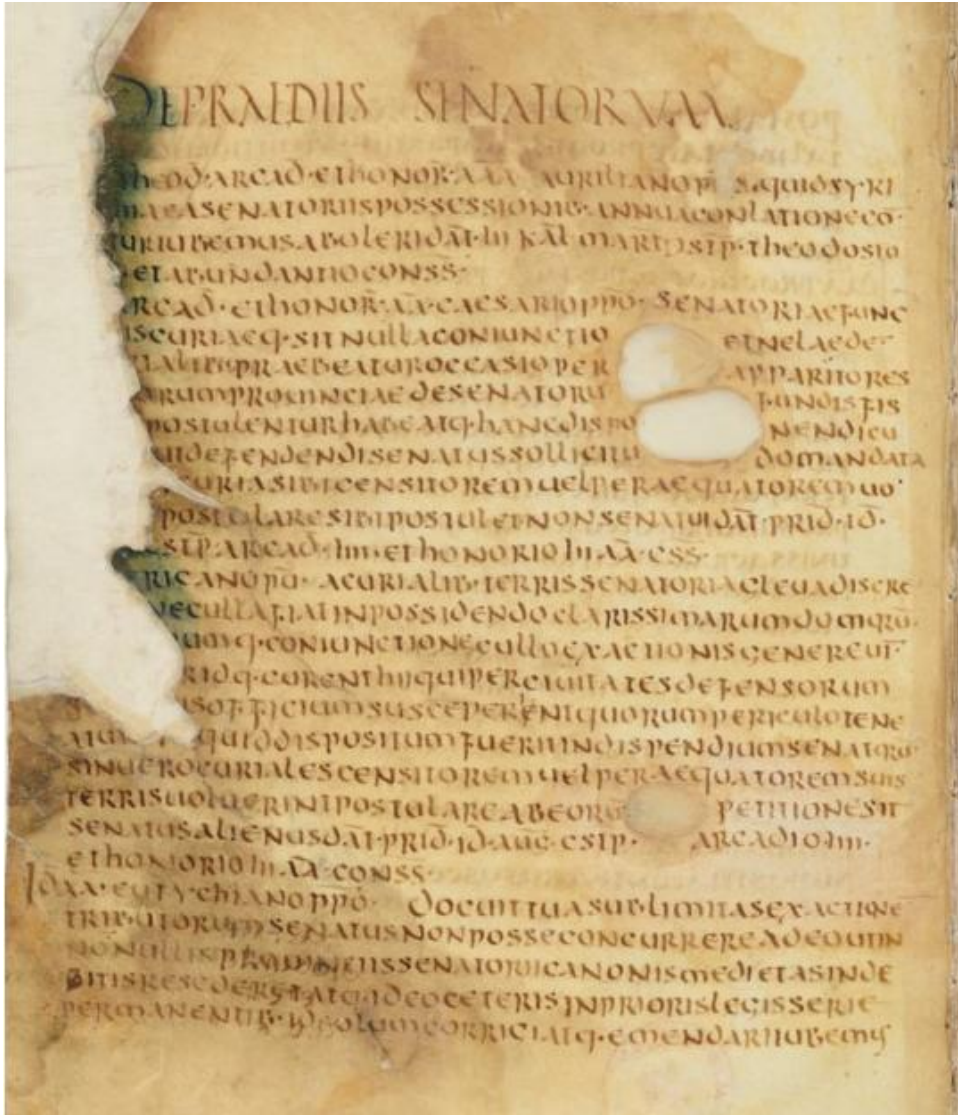 DE PRAEDIIS SENATORVM
THEOD· ARCAD· ET HONOR· AAA AURILIANO P̄ S· QUIDSYRI
EA SENATORIIS POSSESSIONIB· ANNUA CONLATIONE CŌ·
IUBEMUS ABOLERI DAT̄· III KAL̄ MART P̄S̄T̄P· THEODOSIO
ET ABUNDANTIO CONSS̄·
ARCAD̄· ET HONOR̄· AĀ· CAESARIO PPŌ· SENATORIAE FUNC
IS CURIAEQ· SIT NULLA CONIUNCTIO ET NE LAEDE
ALIB· PRAEBEATUR OCCASIO PER APPARITORES
ORUM PROUINCIAE DE SENATORU FUNDIS FIS
POSTULENTUR HABEATQ· HANC DISPO NENDI CU
DEFENDENDI SENATUS SOLLICITU DO MANDATA
CURIA SIBI CENSITOREM UEL PERAEQUATOREM UO
POSTULARE SIBI POSTULET NON SENATUI DAT̄· PRID̄· ID̄·
S̄T̄P· ARCAD̄· IIII· ET HONORIO III AĀ· CSS̄·
RICANO PŪ· A CURIALIB· TERRIS SENATORIA GLEUA DISCRE
NEC ULLA FIAT IN POSSIDENDO CLARISSIMARUM DOM
UMQ· CONIUNCTIO NEC ULLO EXACTIONIS GENERE CUR
IDQ· CURENT HII QUI PER CIUITATES DEFENSORUM
OFFICIUM SUSCEPERENT QUORUM PERICULO TENE
QUID DISPOSITUM FUERIT IN DISPENDIUM SENATORU
SIN UERO CURIALES CENSITOREM UEL PERAEQUATOREM SUIS
TERRIS UOLUERINT POSTULARE AB EORŪ PETITIONE SIT
SENATUS ALIENUS DAT̄· PRID̄· ID̄· AUG· CSTP· ARCADIO IIII·
ET HONORIO III AĀ· CONSS̄·
IDAA· EUTYCHIANO PPŌ· DOCUIT TUA SUBLIMITAS EXACTIONE
TRIBUTORUM SENATUS NON POSSE CONCURRERE ADEO UT IN
NONNULLIS PROUINCIIS SENATORII CANONIS MEDIETAS IN DE
BITIS RESEDERIT ATQ· IDEO CETERIS IN PRIORIS LEGIS SERIE
PERMANENTIB· ID SOLUM CORRIGI ATQ· EMENDARI IUBEMUS